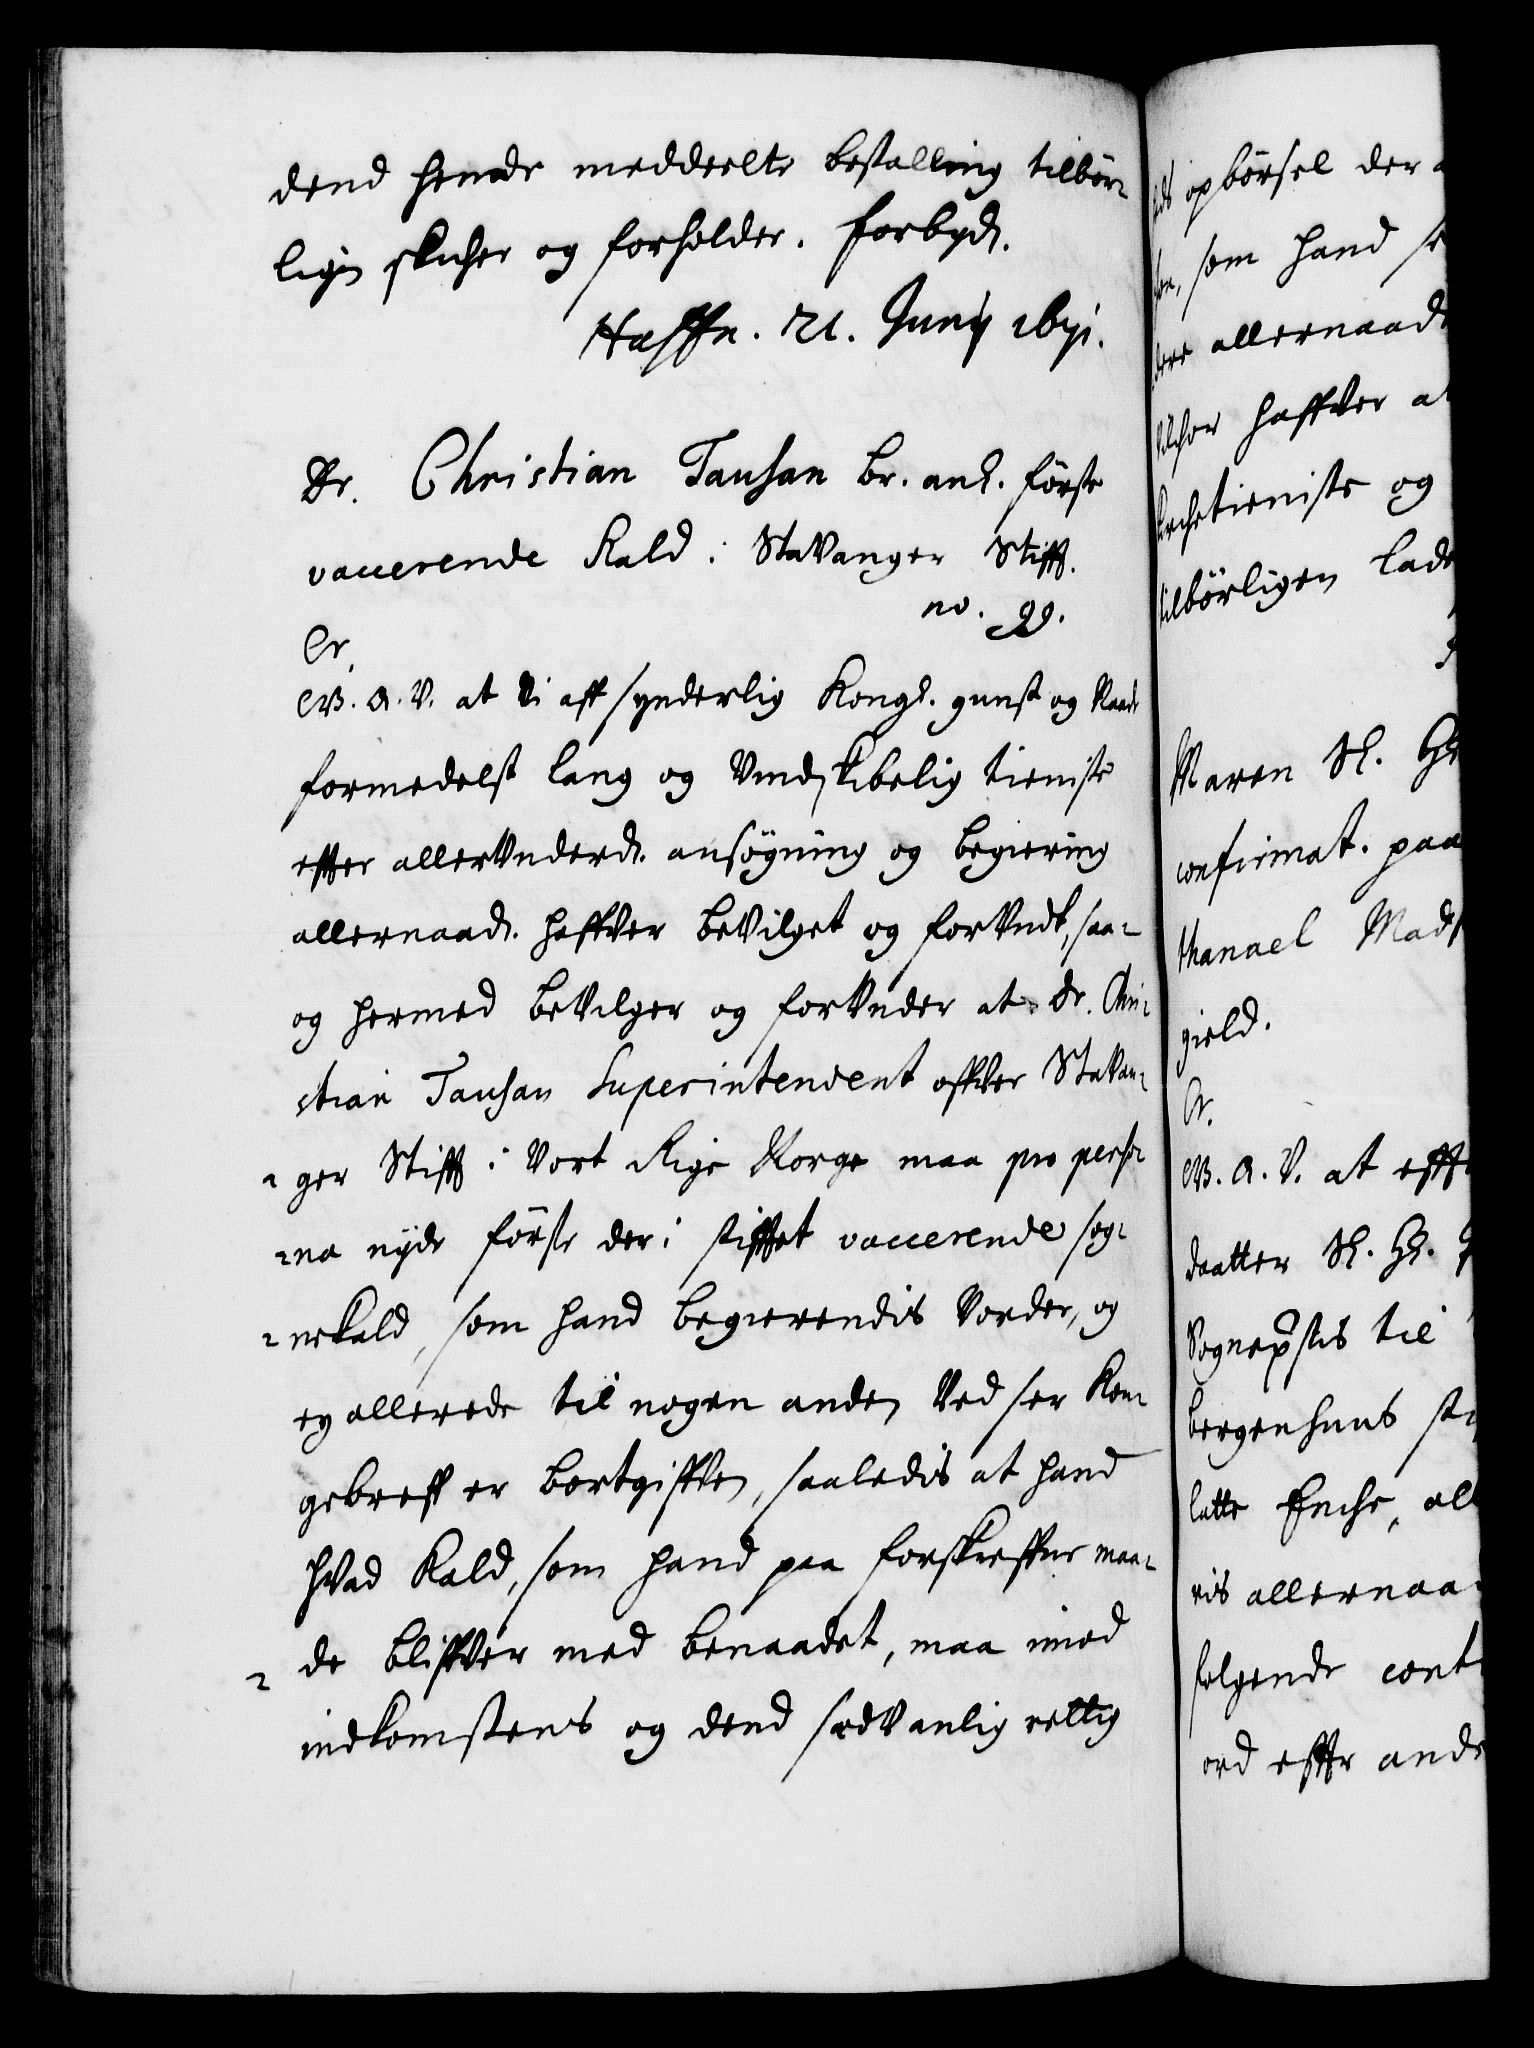 dend hende meddeelte bestalling tilbør-
lign skicher og forholder. Forbyd.
Haffn. 21. Junij 1691.
Dr. Christian Tausan br. anl. første
vaccerende Kald i StaVanger Stifft.
no. 99.
Cr.
G.A.V. at Vi aff synderlig Kongl. gunst og Naade
formedelst lang og Vindskibelig tieniste
effter allerVnderd. ansøgning og begiering
allernaad. haffver beVilget og forVndt, saa-
og hermed beVilger og forVnder at Dr. Chri-
stian Tausan Superintendent offver StaVan-
ger Stifft i Vort Rige Norge maa pro perso-
na nyde første der i stifftet vaccerende sog-
nekald, som hand begierendis Vorder, og
ey allerede til nogen anden Ved ser Kon-
gebreff er bortgiffven, saaledis at hand
hVad Kald, som hand paa forskreffne maa-
de bliffver med benaadet, maa imod
indkomstens og dend sædVanlig rettig
opbørsel der
som hand
dere allernaad
haffver a
kirchetieniste og
tilbørligen lade
Maren Sl. Hr
confirmat. paa
thanael Mads
gield.
Cr.
G.A.V. at efft
daatter Sl. Hr.
Sognepstis til
bergenhuus sti
latte Enche, all
ris allernaa
følgende cont
ord effter ande